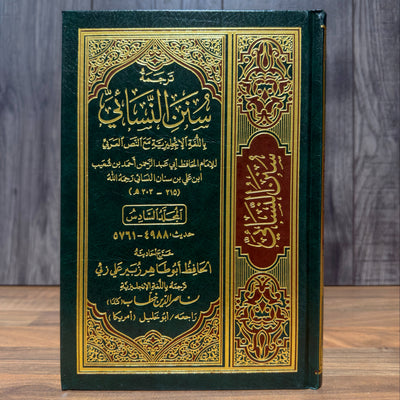 ترجمة
سنن النسائي
باللغة الإنجليزية مع النص العربي
للإمام الحافظ أبي عبد الرحمن أحمد بن شعيب
ابن علي بن سنان النسائي رحمه الله
(٢١٥ - ٣٠٣ هـ)
المجلد السادس
حديث: ٤٩٨٨-٥٧٦١
خرج أحاديثه
الحافظ أبو طاهر زبير علي زئي
ترجمه باللغة الإنجليزية
ناصر الدين خطاب (كندا)
راجعه / أبو خليل (أمريكا)
سنن النسائي